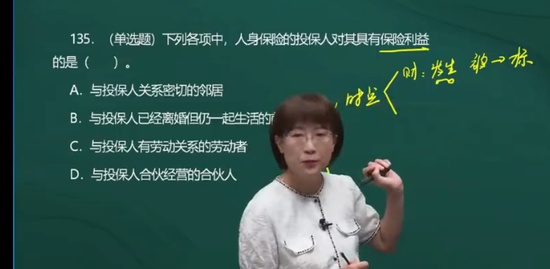 135. （单选题）下列各项中，人身保险的投保人对其具有保险利益
的是（ ）。
A. 与投保人关系密切的邻居
B. 与投保人已经离婚但仍一起生活的
C. 与投保人有劳动关系的劳动者
D. 与投保人合伙经营的合伙人
财：发生